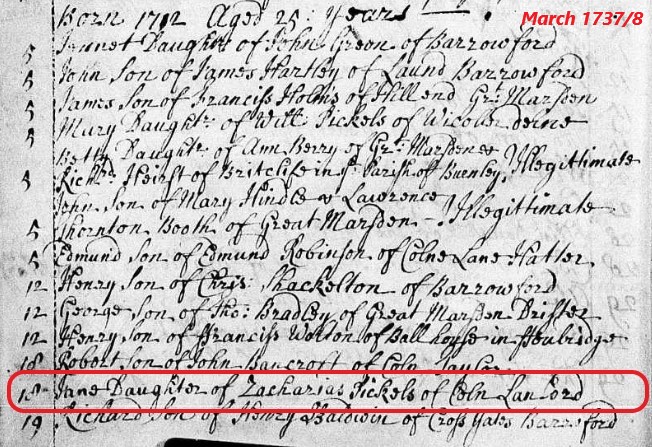 March 1737/8
Born 1712 Aged 25: Years
5 Jennet Daughter of John Green of Barrowford
5 John Son of James Hartley of Laund Barrowford
5 James Son of Franciss of Hill end Grt: Marsden
5 Mary Daughtr. of Willm: Pickels of
Betty Daughtr. of Ann Berry of Grt: Marsden & Illegittimate
5 Richd: of Britclife in ye: Parish of Burnley,
John Son of Mary Hindle & Lawrence
5 Thornton Booth of Great Marsden - Illegittimate
5 Edmund Son of Edmund Robinson of Colne Lane Hatter
12 Henry Son of Chris: Shackelton of Barrowford
12 George Son of Tho: Bradley of Great Marsden
12 Henry Son of Franciss of Ball house in
18 Robert Son of John Bancroft of Coln Taylor
18 Jane Daughter of Zacharias Pickels of Coln Lan Lord
19 Richard Son of Henry Baldwin of Cross Yates Barrowford